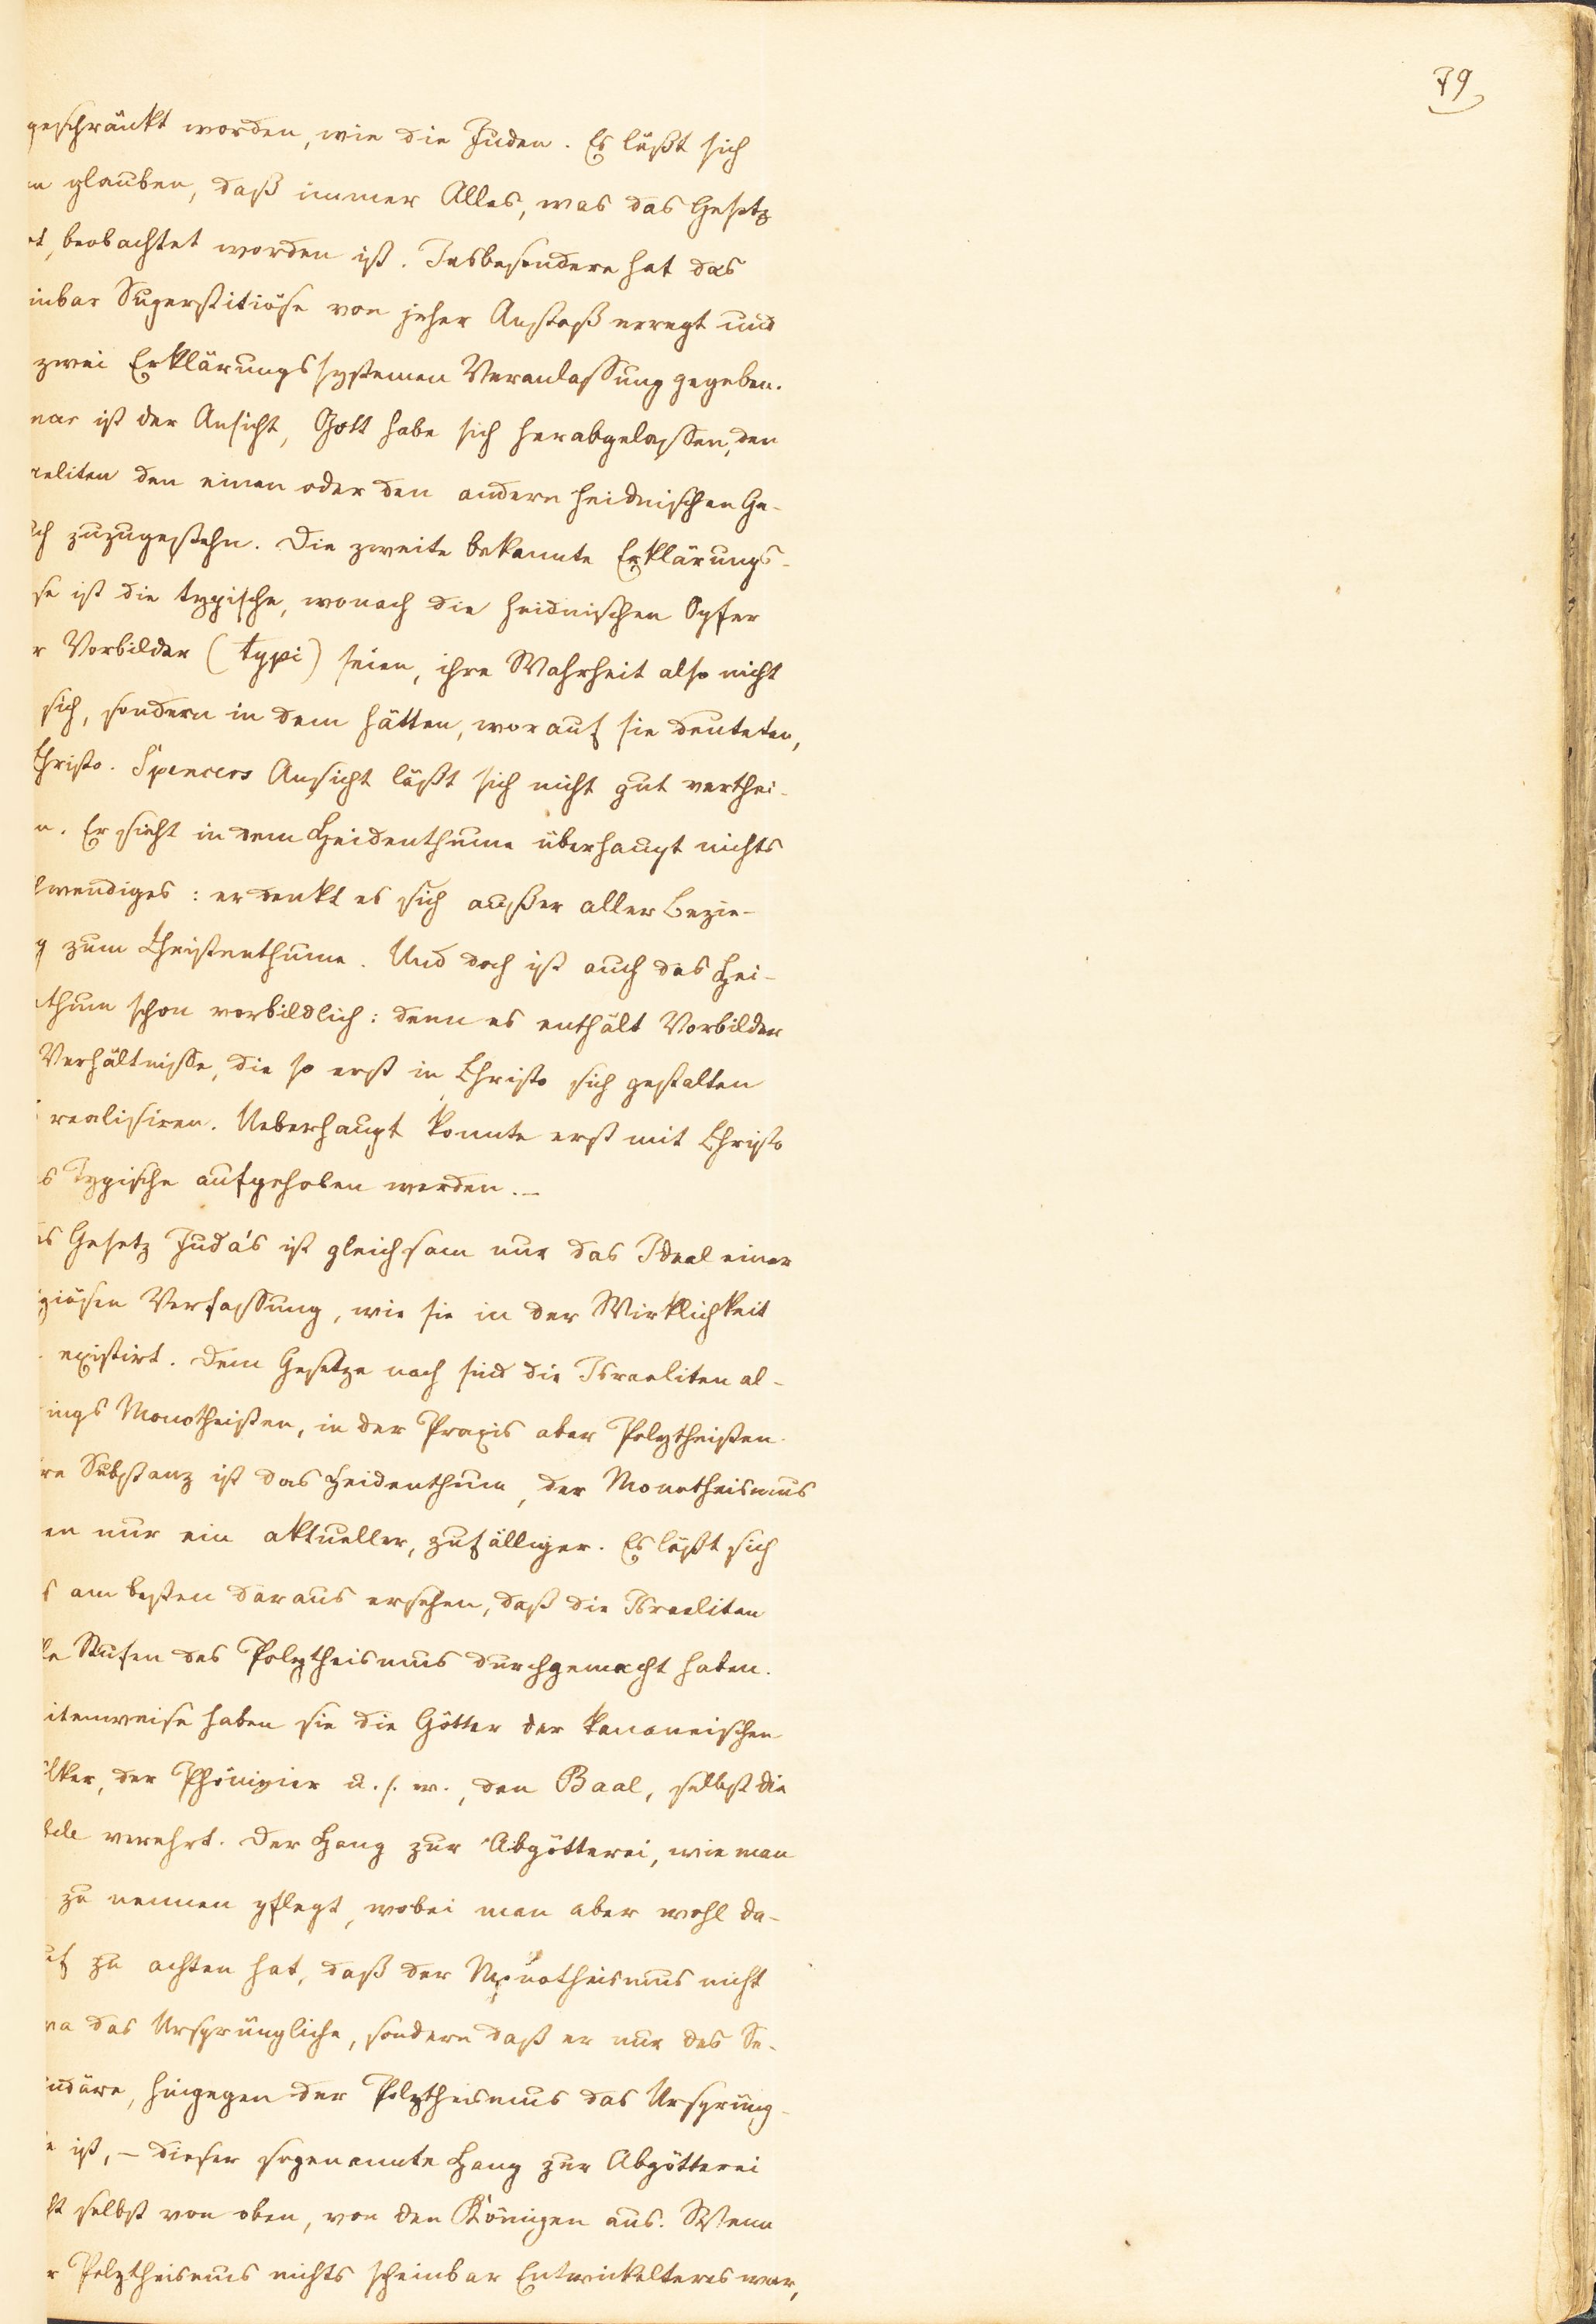 79
geschränkt worden, wie die Juden. Es läßt sich
n glauben, daß immer Alles, was das Gesetz
ot, beobachtet worden ist. Insbesondere hat das
inbar Superstitiöse von jeher Anstoß erregt und
zwei Erklärungssystemen Veranlassung gegeben.
ist der Ansicht, Gott habe sich herabgelassen, den
raeliten den einen oder den andern heidnischen Ge-
ch zuzugestehn. Die zweite bekannte Erklärungs-
se ist die typische, wonach die heidnischen Opfer
r Vorbilder (typi) seien, ihre Wahrheit also nicht
sich, sondern in dem hätten, worauf sie deuteten,
Christo. Spencers Ansicht läßt sich nicht gut verthei-
n. Er sieht in dem Heidenthume überhaupt nichts
wendiges: er denkt es sich außer aller Bezie-
g zum Christenthume. Und doch ist auch das Hei-
thum schon vorbildlich: denn es enthält Vorbilder
Verhältnisse, die so erst in Christo sich gestalten
realisiren. Ueberhaupt konnte erst mit Christo
s Typische aufgehoben werden. –
as Gesetz Juda's ist gleichsam nur das Ideal einer
igiösen Verfassung, wie sie in der Wirklichkeit
existirt. Dem Gesetze nach sind die Israeliten al-
ings Monotheisten, in der Praxis aber Polytheisten.
re Substanz ist das Heidenthum, der Monotheismus
en nur ein aktueller, zufälliger. Es läßt sich
s am besten daraus ersehen, daß die Israeliten
le Stufen des Polytheismus durchgemacht haben.
itenweise haben sie die Götter der kananeischen
ölker, der Phönizier u. s. w., den Baal, selbst die
bele verehrt. Der Hang zur Abgötterei, wie man
zu nennen pflegt, wobei man aber wohl da-
uf zu achten hat, daß der Monotheismus nicht
wa das Ursprüngliche, sondern daß er nur das Se-
undäre, hingegen der Polytheismus das Ursprüng-
e ist, – dieser sogenannte Hang zur Abgötterei
t selbst von oben, von den Königen aus. Wenn
r Polytheismus nichts scheinbar Entwickelteres war,